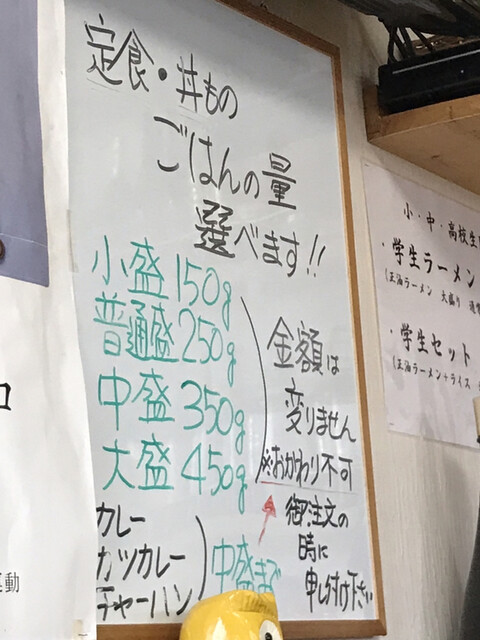 定食・丼もの
ごはんの量
選べます!!
小盛150g
普通盛250g
中盛350g
大盛450g
金額は
変りません
※おかわり不可
御注文の
時に
申し付け下さい
カレー
カツカレー
チャーハン
中盛まで
小・中・高校生
・学生ラーメン
(正油ラーメン 大盛り
・学生セット
(正油ラーメン+ライス
ロ
運動